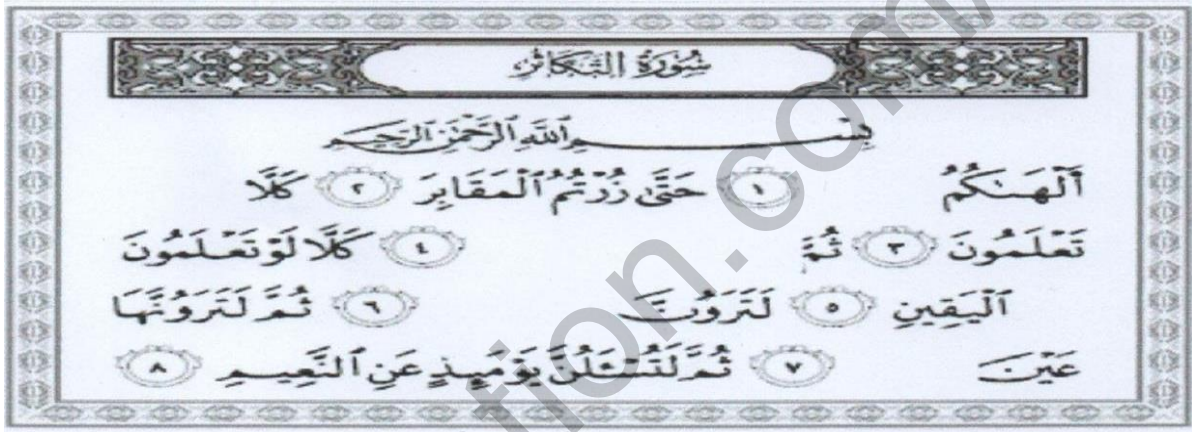 سُورَةُ التَّكَاثُرِ
بِسْمِ اللَّهِ الرَّحْمَٰنِ الرَّحِيمِ
أَلْهَىٰكُمُ ١ حَتَّىٰ زُرْتُمُ الْمَقَابِرَ ٢ كَلَّا
تَعْلَمُونَ ٣ ثُمَّ ٤ كَلَّا لَوْ تَعْلَمُونَ
الْيَقِينِ ٥ لَتَرَوُنَّ ٦ ثُمَّ لَتَرَوُنَّهَا
عَيْنَ ٧ ثُمَّ لَتُسْـَٔلُنَّ يَوْمَئِذٍ عَنِ النَّعِيمِ ٨
tion.com/